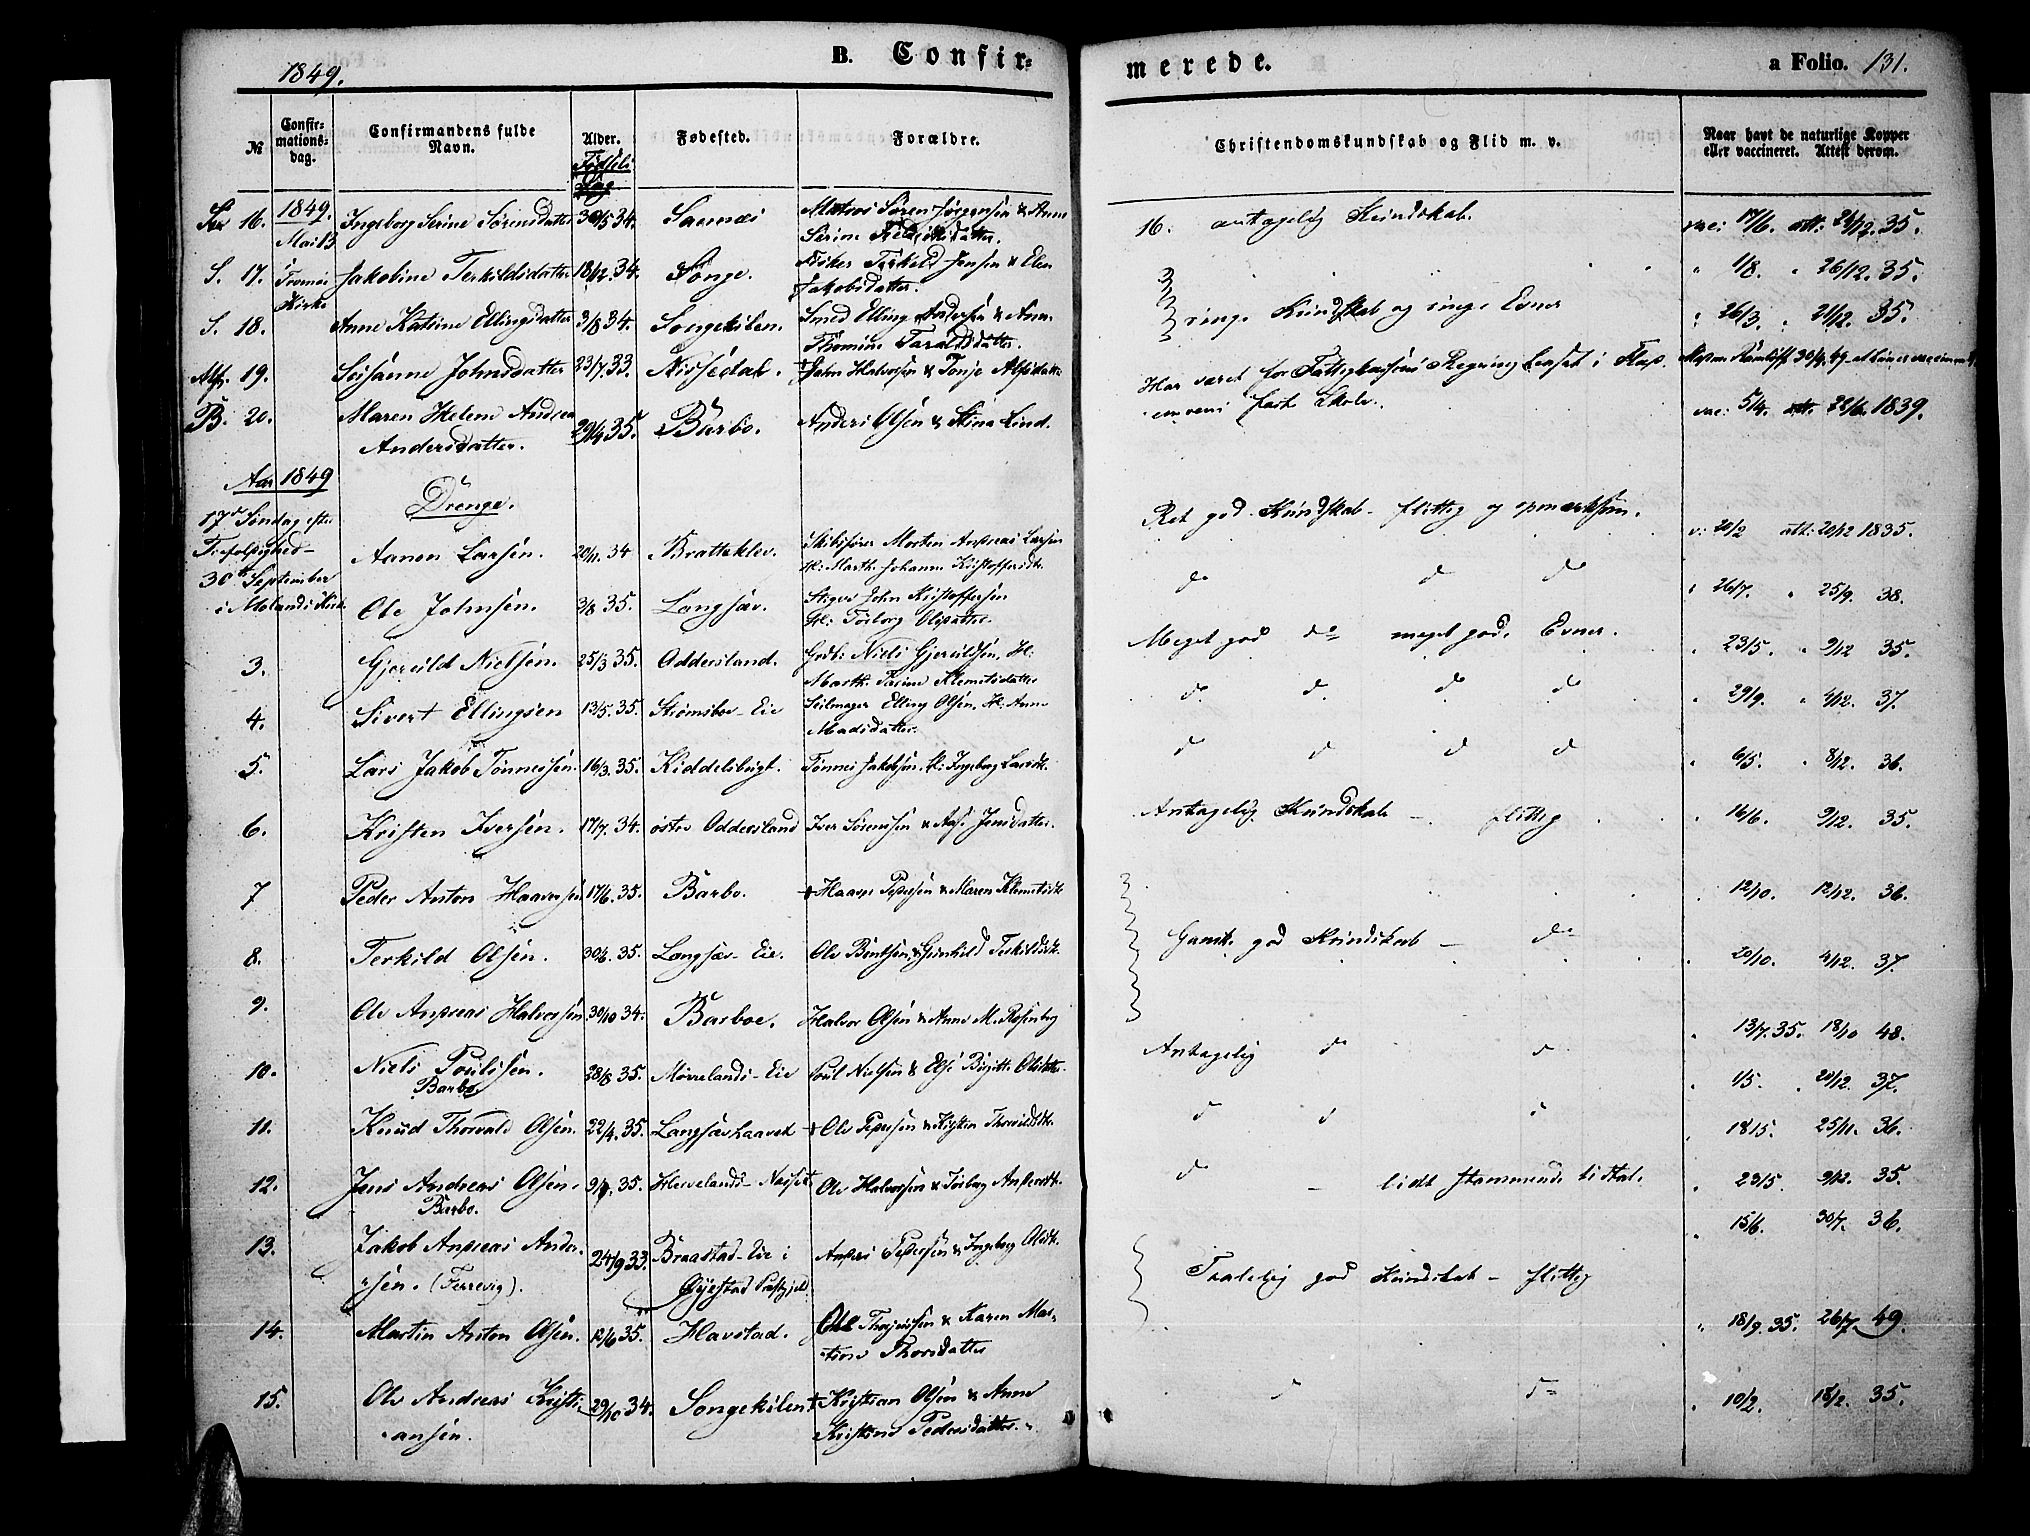 1849.
B. Confir=
merede.
a Folio. 131.
№
Confir=
mations=
dag.
Confirmandens fulde
Navn.
Alder.
Fødsels
Dag
Fødested.
Forældre.
Christendomskundskab og Flid m. v.
Naar havt de naturlige Kopper
eller vaccineret. Attest derom.
16. 1849. Mai 13 Ingeborg Serine Sørensdatter 30/5 34. Matros Søren Jørgensen & Anne
Serine
16. antagelig Kundskab. vac: 17/6. att: 28/12. 35.
S. 17. Tromøe Kirke Jakoline Terkildsdatter 18/12. 34. Songe. Fisker Terkild Jensen & Elen
Jakobsdatter.
" 1/8. " 26/12. 35.
S. 18. Anne Katrine Ellingsdatter 3/8 34. Songekilen. Smed Elling Andersen & Anne
Thomine Taraldsdatter.
ringe Kundskab og ringe Evner " 26/3. " 21/12. 35.
19. Susanne Johnsdatter 23/7. 33. Nissedal. † John Halvorsen & Tonje Alfsdatter
Har været for Fattigkassens Regning læset i Flas
fast Skole.
B. 20. Maren Helene Andrea
Andersdatter. 29/4 35. Barbo. Anders Olsen & Stina Lind.
vac: 5/4. att. 22/6. 1839.
Aar 1849
Drenge.
17de Søndag efter
Trefoldighed -
30te September
i Molands Kirke
Aanen Larsen. 20/11. 34 Bratteklev. Skibsfører Morten Andreas Larsen
H: Marth. Johanne Kristoffersdt.
Ret god Kundskab - flittig og opmærksom. v: 20/2 att: 20/12 1835.
Ole Johnsen. 3/8 35. Langsæv. John Kristoffersen
H: Torborg Olsdatter.
do d do " 26/7. " 25/9. 38.
3. Gjeruld Nielsen. 25/3 35. Oddersland. Grdb: Niels Gjeruldsen, H:
Marth. Tarine Klemetsdatter
Meget god do meget gode Evner. " 23/5. " 9/12 35.
4. Sivert Ellingsen 13/5. 35. Strømsboe - Eie Seilmager Elling Olsen, H. Anne
Madsdatter.
do d. do do " 29/9. " 4/12. 37.
5. Lars Jakob Tønnessen. 16/3. 35. Kiddelsbugt. Tønnes Jakobsen, H: Ingeborg Larsdt.
d d d d " 6/5. " 8/12. 36.
6. Kristen Iversen. 17/7. 34. østre Oddersland Iver Sørensen & Aase Jensdatter.
Antagelig Kundskab - flittig " 16/6. 9/12. 35.
7 Peder Anton Haaversen 17/6. 35. Barbo. † Haaver Pedersen & Maren Klemetsdt.
12/10. 12/12. 36.
8. Terkild Olsen. 30/6. 35. Langsæv - Eie. Ole Bentsen & Gunhild Terkildsdt.
Ganske god Kundskab - do " 20/10. 4/12. 37.
9. Ole Andreas Halvorsen 30/10 34. Barboe. Halvor Olsen & Anne M. Rosenberg
" 13/7. 35. 18/10 48.
10. Niels Poulssen.
Barbo 28/8 35. Mørelands - Eie Poul Nielsen & Else Birgitte Olsdatter.
Antagelig d d " 1/5. " 20/12. 37.
11. Knud Thorvald Olsen. 22/4. 35. Langsævhaavet † Ole Pedersen & Kirsten Thorvildsdt.
d d d " 18/5. 25/11. 36.
12. Jens Andreas Olsen.
Barbo. 35. Hervelands - Næset Ole Halvorsen & Torborg Andersdt.
d - lidt stammende i Tale. " 23/5. 9/12. 35.
13. Jakob Andreas Ander-
sen. (Terrevig). 24/9 33. Braastad - Eie i
Øyestad Præstgjeld Anders Pedersen & Ingeborg Olsdt.
" 15/6. 30/7. 36.
Taalelig god Kundskab - flittig
14. Martin Anton Olsen. 12/6 35. Havstad. Ole Thorjussen & Karen Mar-
tine Thorsdatter
" 18/9. 35. 26/7. 49.
15. Ole Andreas Kristi-
ansen. 29/10 34. Songekilen † Kristian Olsen & Anne
Kristine Pedersdatter.
d do " 10/2. 18/12. 35.